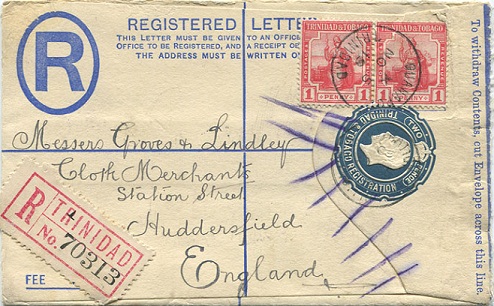 R
REGISTERED LETTER
THIS LETTER MUST BE GIVEN TO AN OFFICER
OFFICE TO BE REGISTERED, AND A RECEIPT
THE ADDRESS MUST BE WRITTEN ON
TRINIDAD & TOBAGO
1 PENNY 1
TRINIDAD & TOBAGO
1 PENNY 1
TRINIDAD & TOBAGO REGISTRATION
TWO
PENCE
Messrs Groves & Lindley
Cloth Merchants
Station Street
Huddersfield
England
R
TRINIDAD
No. 70313
FEE
To withdraw Contents, cut Envelope across this line.